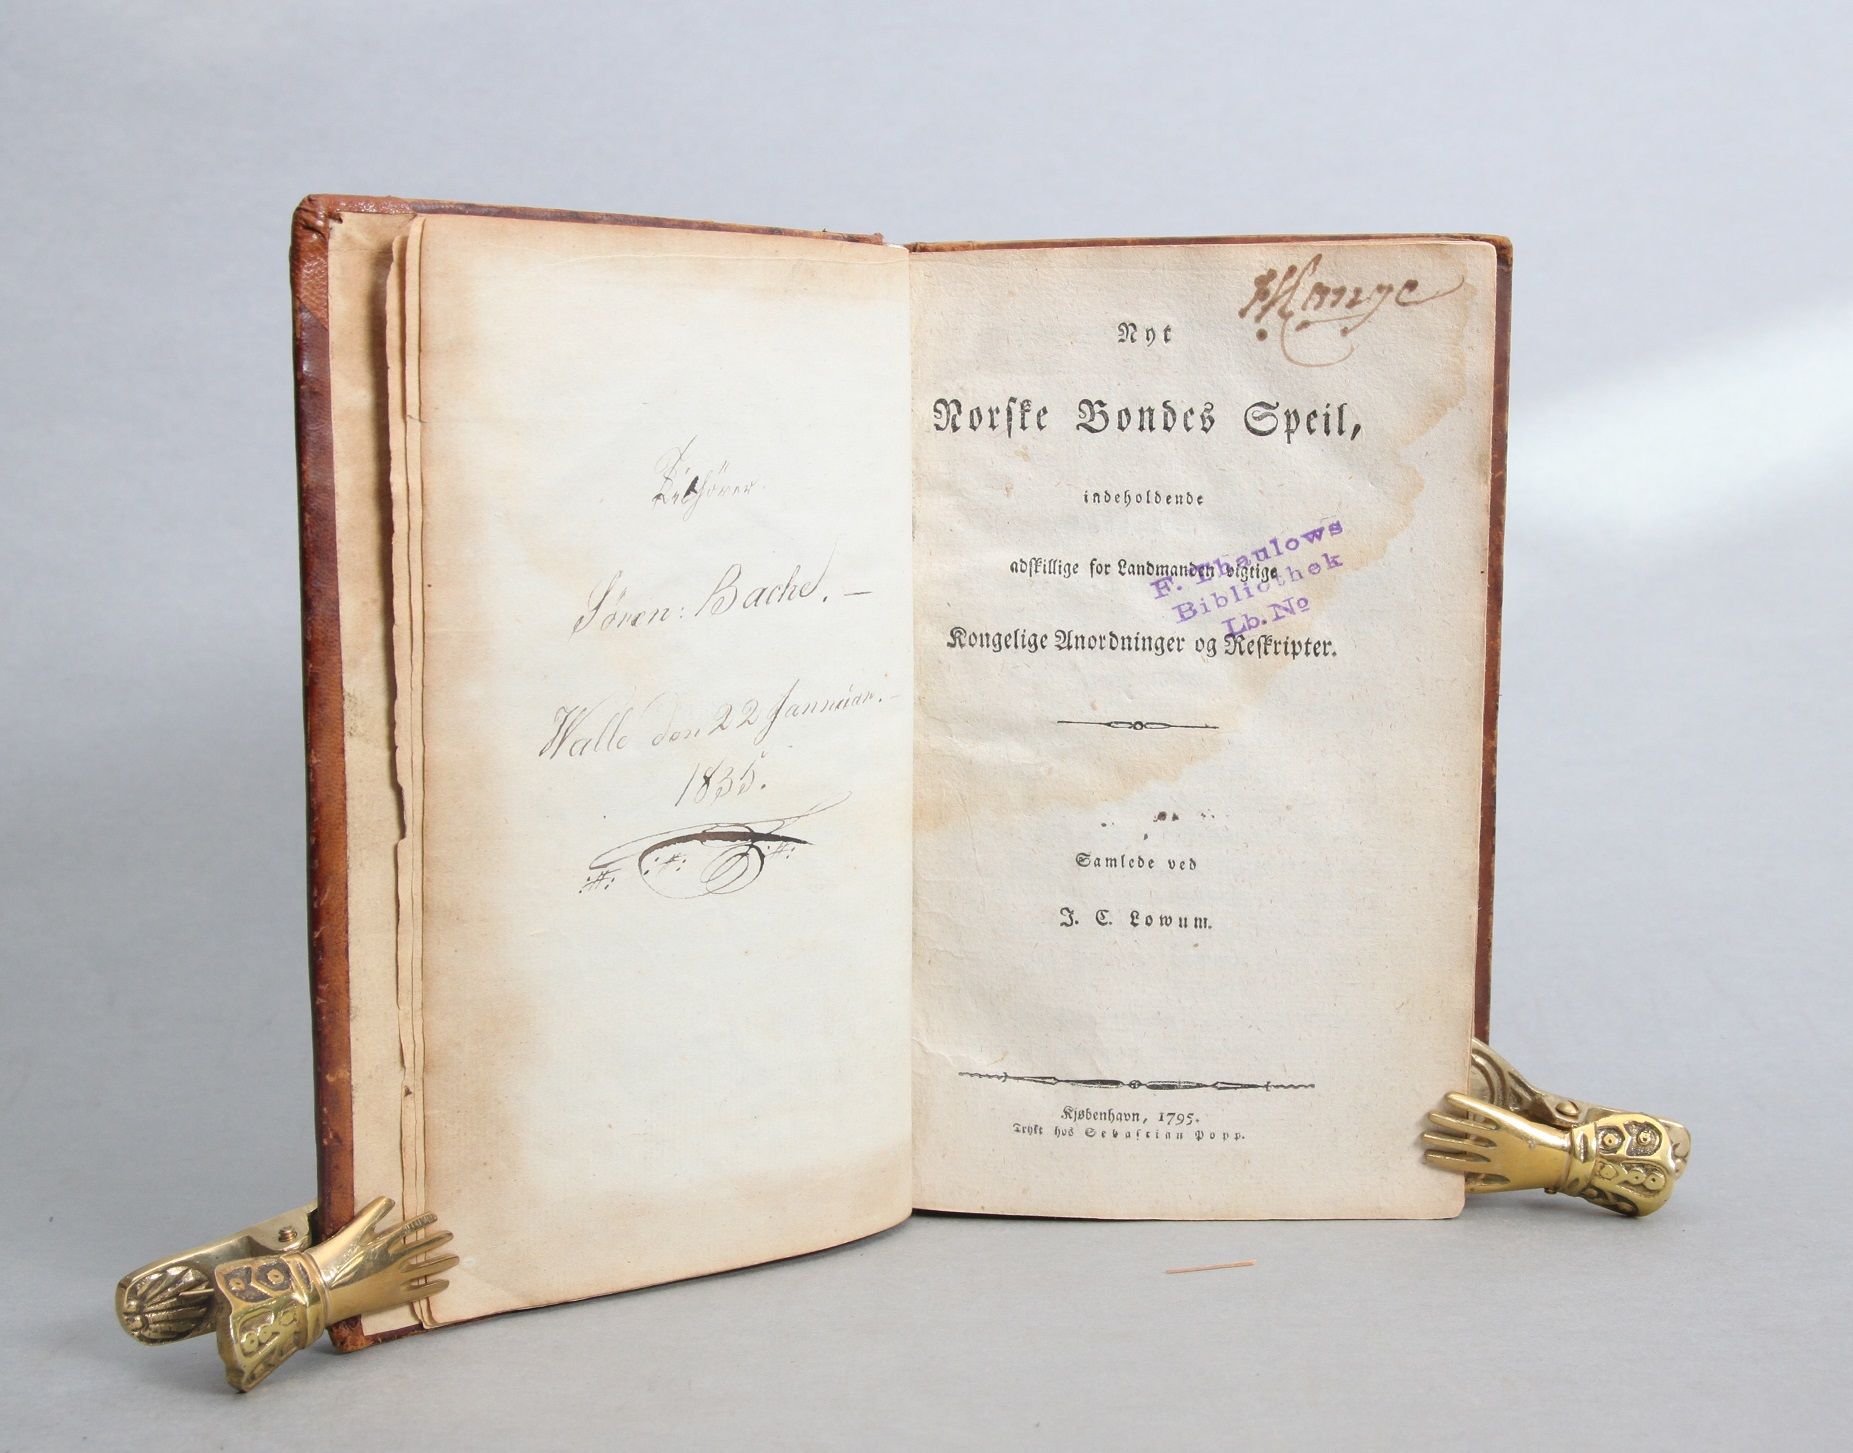 Tilhörer
Sören: Bache. —
Walle den 22 Januar. —
1835.
Nyt
Norske Bondes Speil,
indeholdende
adskillige for Landmanden vigtige
Kongelige Anordninger og Reskripter.
F. Thaulows
Bibliothek
Lb. No
Samlede ved
J. C. Lowum.
Kjøbenhavn, 1795.
Trykt hos Sebastian Popp.